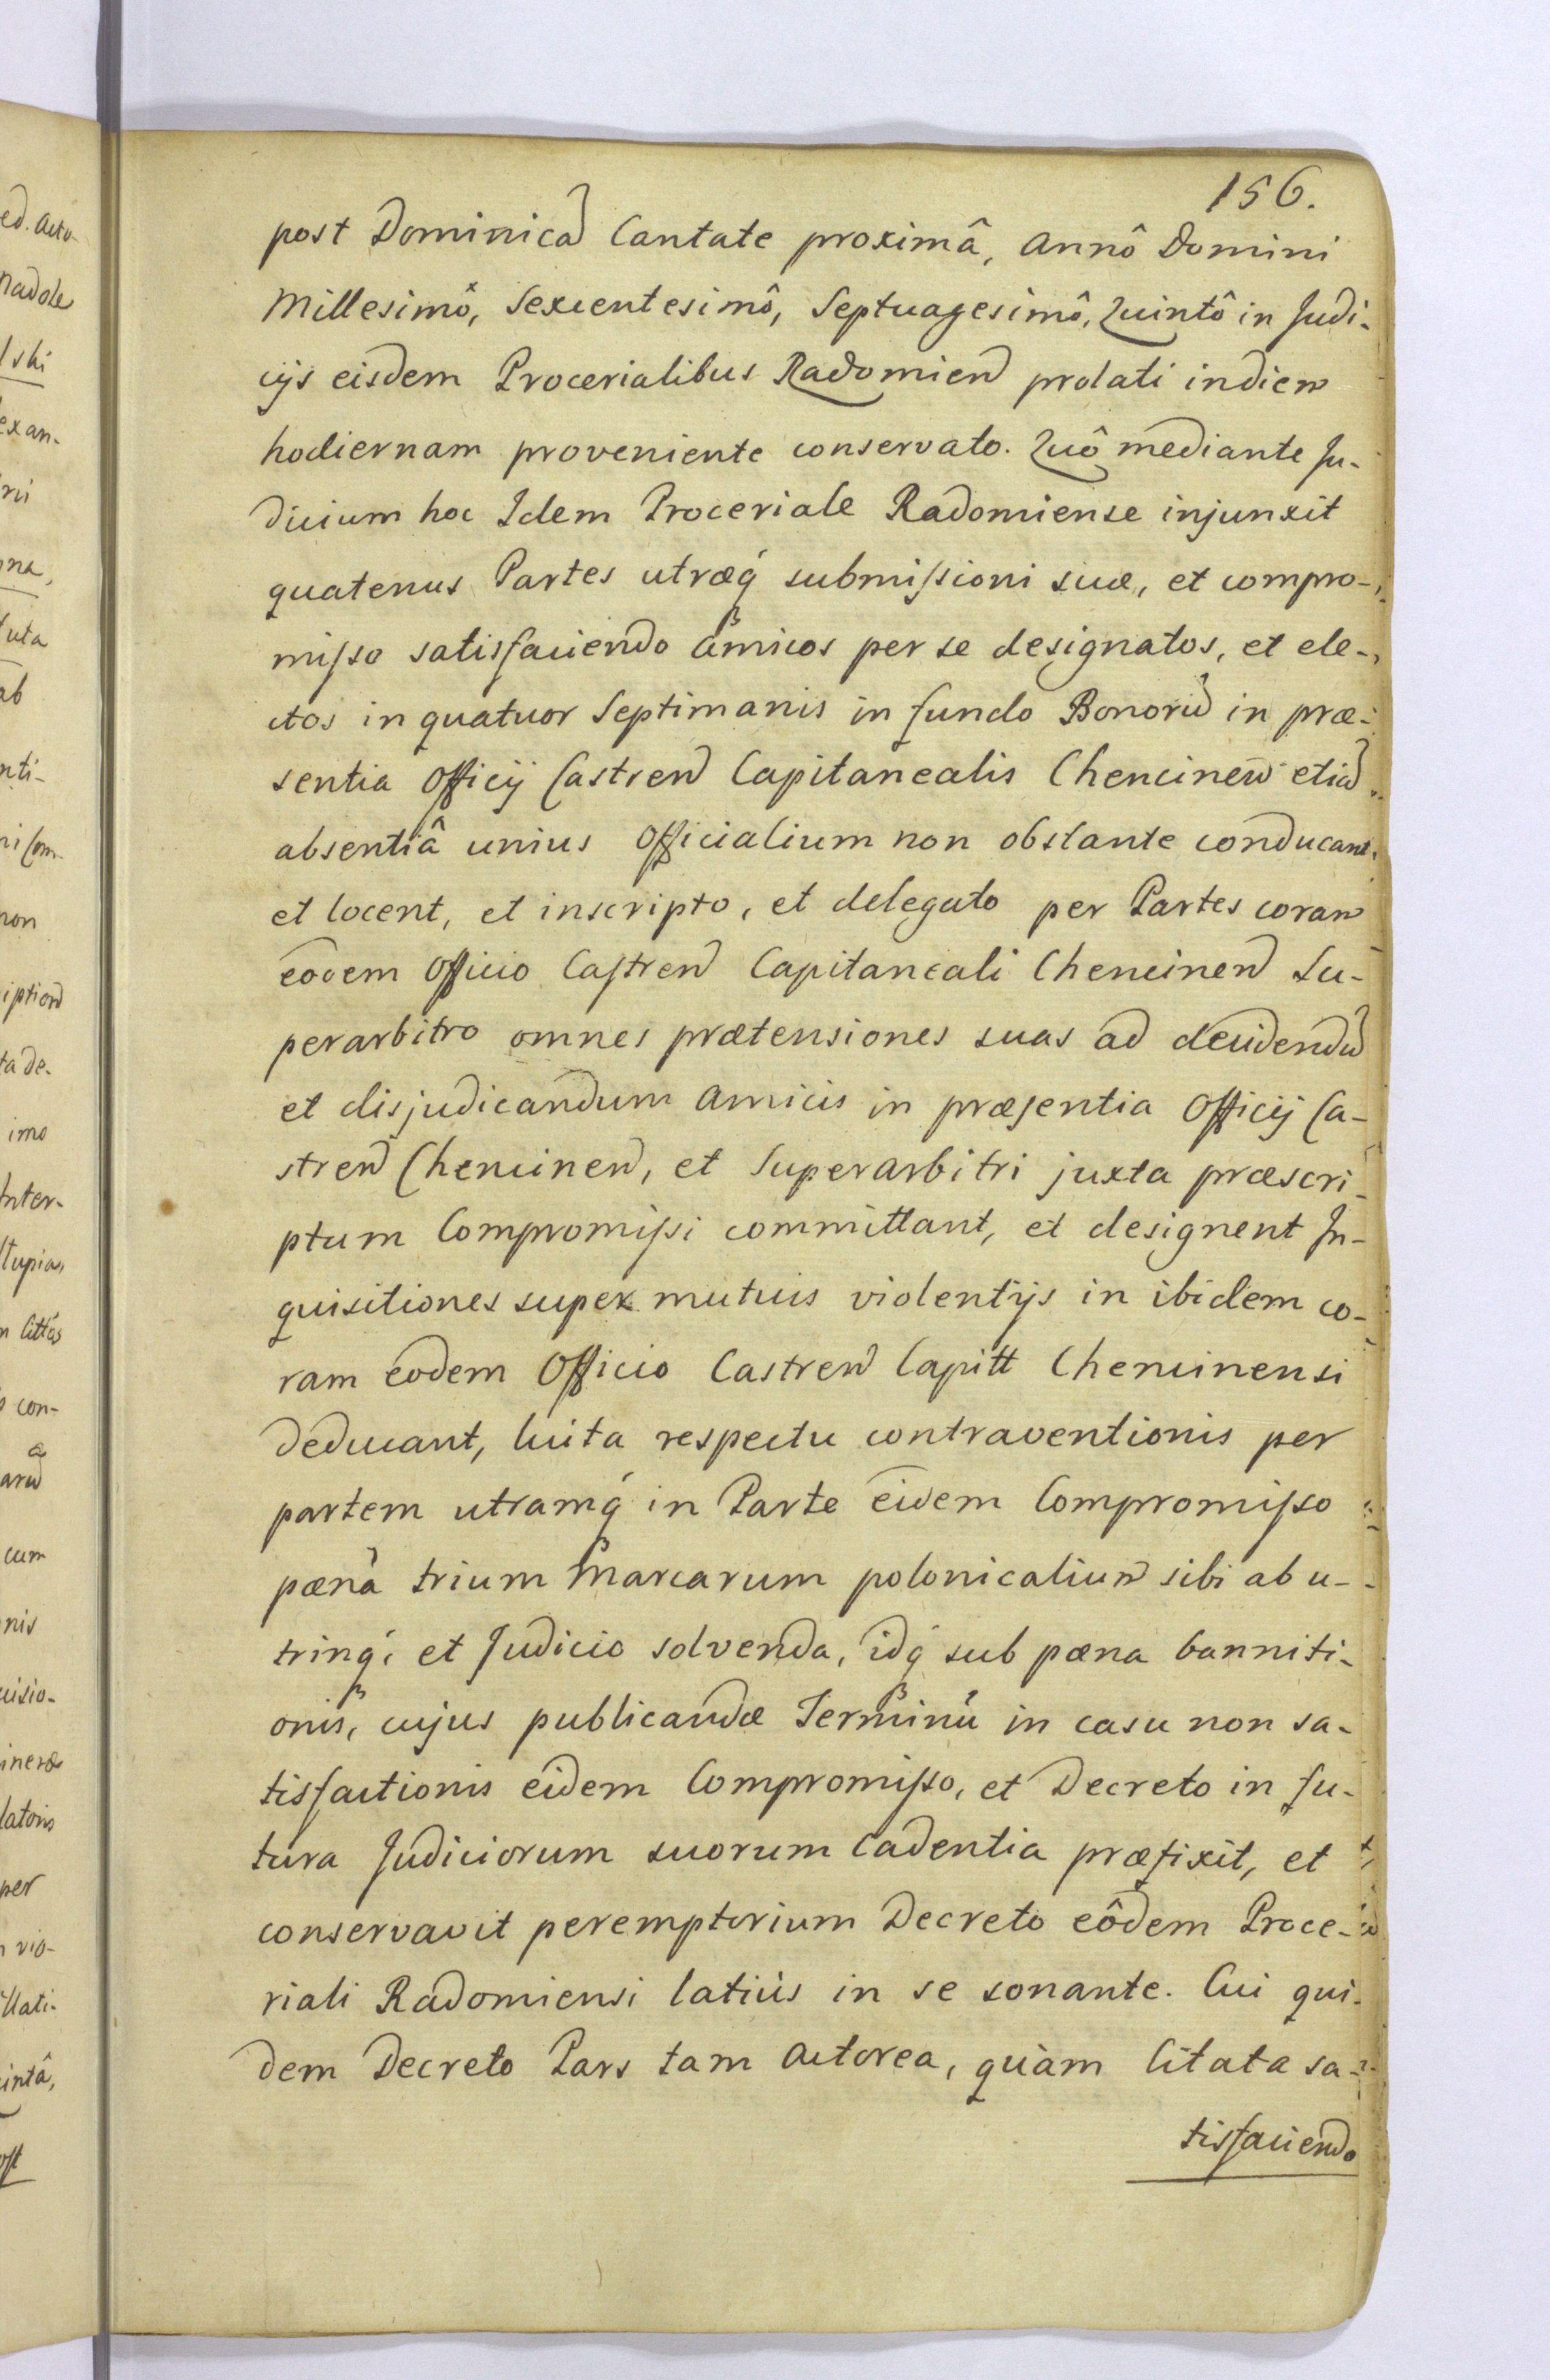 156.
post Dominicã Cantate proximâ, Annô Domini
Millesimô, Sexcentesimô, Septuagesimô, Quintô in Judi-
cijs eisdem Procerialibus Radomien̄ prolati in diem
hodiernam proveniente conservato. Quô mediante Ju-
dicium hoc Idem Proceriale Radomiense injunxit
quatenus Partes utræq́ submiſsioni suæ, et compro-
miſso satisfaciendo amicos per se designatos, et ele-
ctos in quatuor Septimanis in fundo Bonorũ in præ-
sentia Officij Castren̄ Capitanealis Chencinen̄ etiã
absentiâ unius Officialium non obstante conducant
et locent, et inscripto, et delegato per Partes coram
eodem Officio Caſtren̄ Capitaneali Chencinen̄ Su-
perarbitro omnes prætensiones suas ad decidendũ
et disjudicandum Amicis in præſentia Officij Ca-
stren̄ Chencinen̄, et Superarbitri juxta præscri-
ptum Compromiſsi committant, et designent In-
quisitiones super mutuis violentijs in ibidem co-
ram eodem Officio Castren̄ Capitt Chencinensi
deducant, luita respectu contraventionis per
partem utramq́ in Parte eidem Compromiſso
pœnâ trium Marcarum polonicalium sibi ab u-
trinq́, et Judicio solvenda, idq́ sub pœna banniti-
onis, cujus publicandæ Terminũ in casu non sa-
tisfactionis eidem Compromiſso, et Decreto in fu-
tura Judiciorum suorum Cadentia præfixit, et
conservavit peremptorium Decreto eôdem Proce-
riali Radomiensi latiùs in se sonante. Cui qui-
dem Decreto Pars tam Actorea, quàm Citata sa-
tisfaciendo